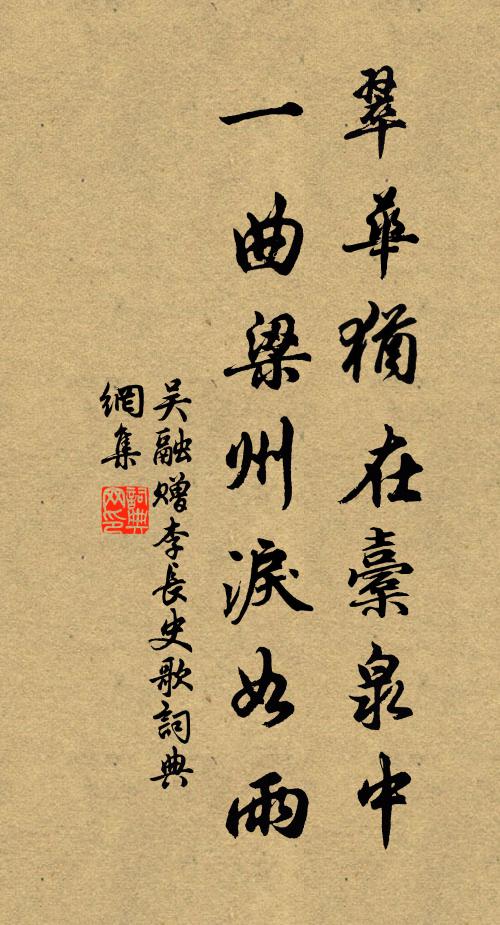 翠華猶在橐泉中
一曲梁州淚如雨
吴融贈李長史歌詞典
網集
詞典網印